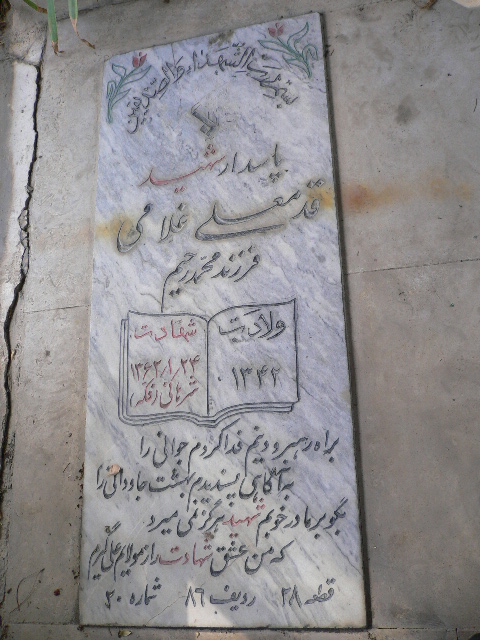 بسم رب الشهداء والصدیقین
پاسدار شهید
قدمعلی غلامی
فرزند محمدرحیم
ولادت
۱۳۴۲
شهادت
۱۳۶۲/۱/۲۴
شرهانی (فکه)
براه رهبر و دینم فدا کردم جوانی را
به آگاهی پسندیدم بهشت جاودانی را
بگو بر مادر خوبم شهید هرگز نمی میرد
که من عشق شهادت را ز مولایم علی گیرم
قطعه ۲۸ ردیف ۸۶ شماره ۲۰